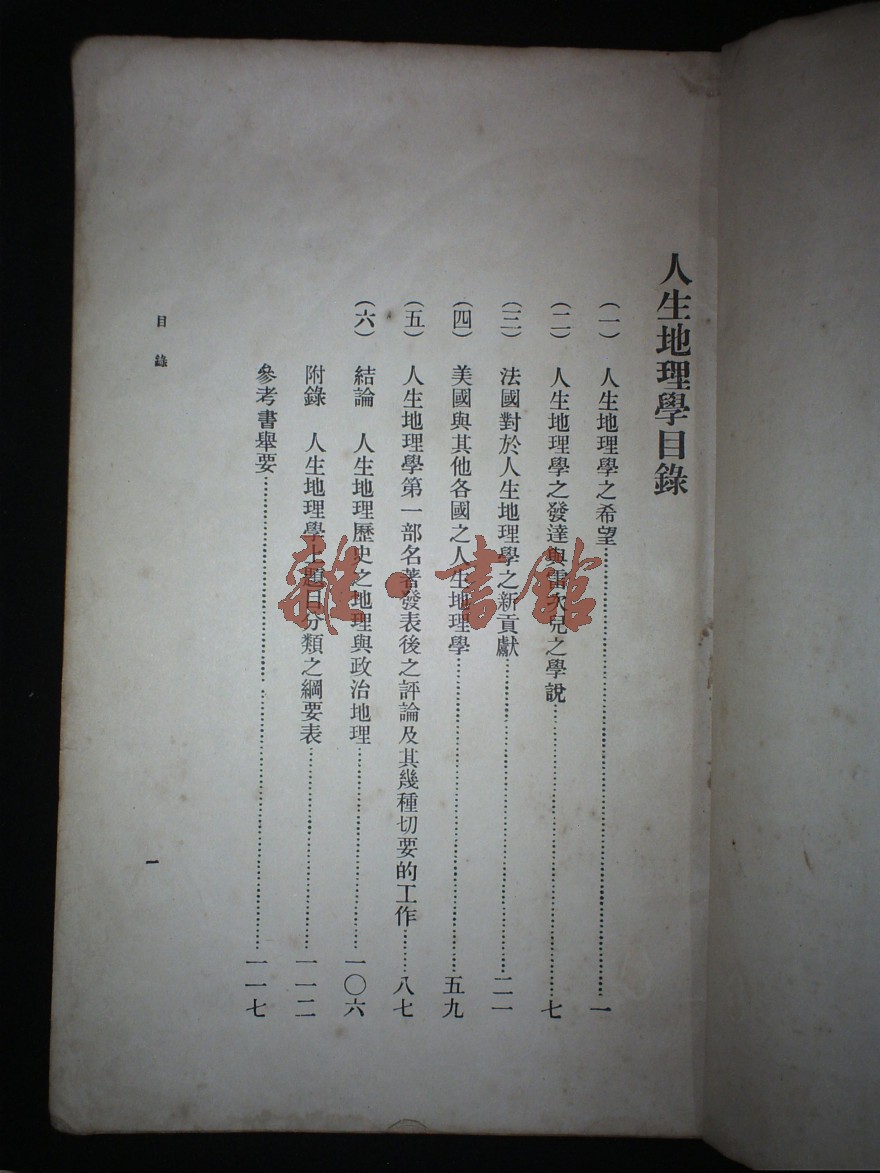 人生地理學目錄
(一) 人生地理學之希望……一
(二) 人生地理學之發達與雷次兒之學說……七
(三) 法國對於人生地理學之新貢獻……二一
(四) 美國與其他各國之人生地理學……五九
(五) 人生地理學第一部名著發表後之評論及其幾種切要的工作……八七
(六) 結論 人生地理歷史之地理與政治地理……一〇六
附錄 人生地理學上題目分類之綱要表……一一二
參考書舉要……一一七
目錄
一
雜·書館